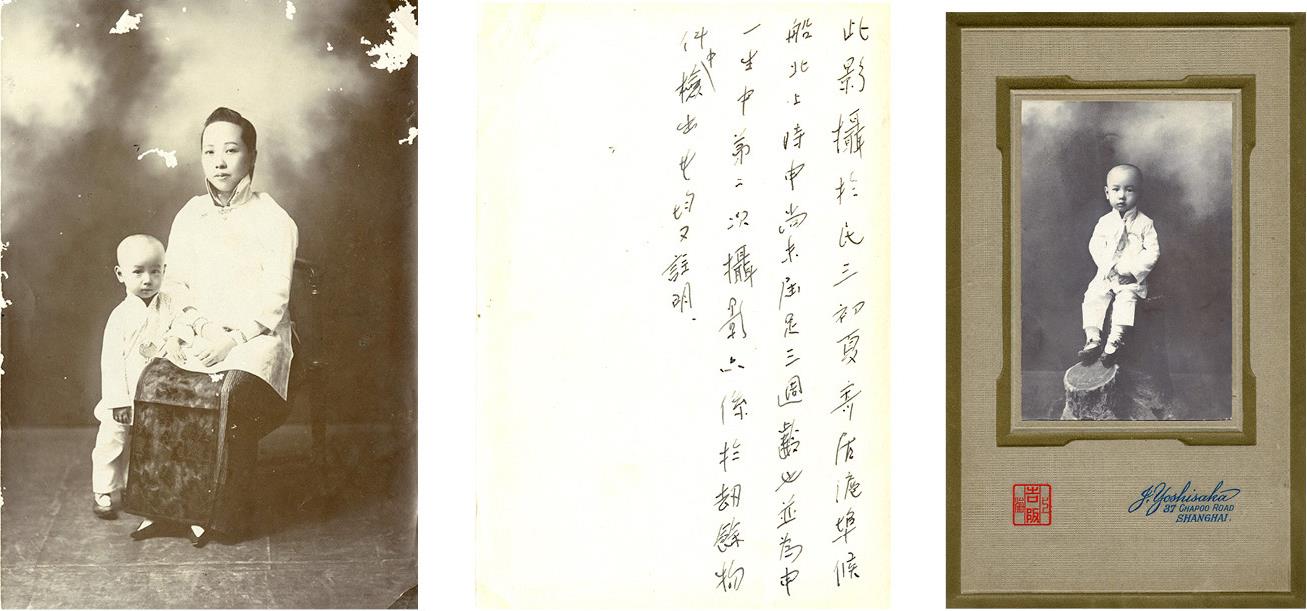 此影攝於民三初夏寄居滬埠候
船北上時申尚未屆足三週齡也並為申
一生中第二次攝影亦係於劫餘物
件中檢出也均又註明.
吉阪
J. Yoshisaka
37 CHAPOO ROAD
SHANGHAI.